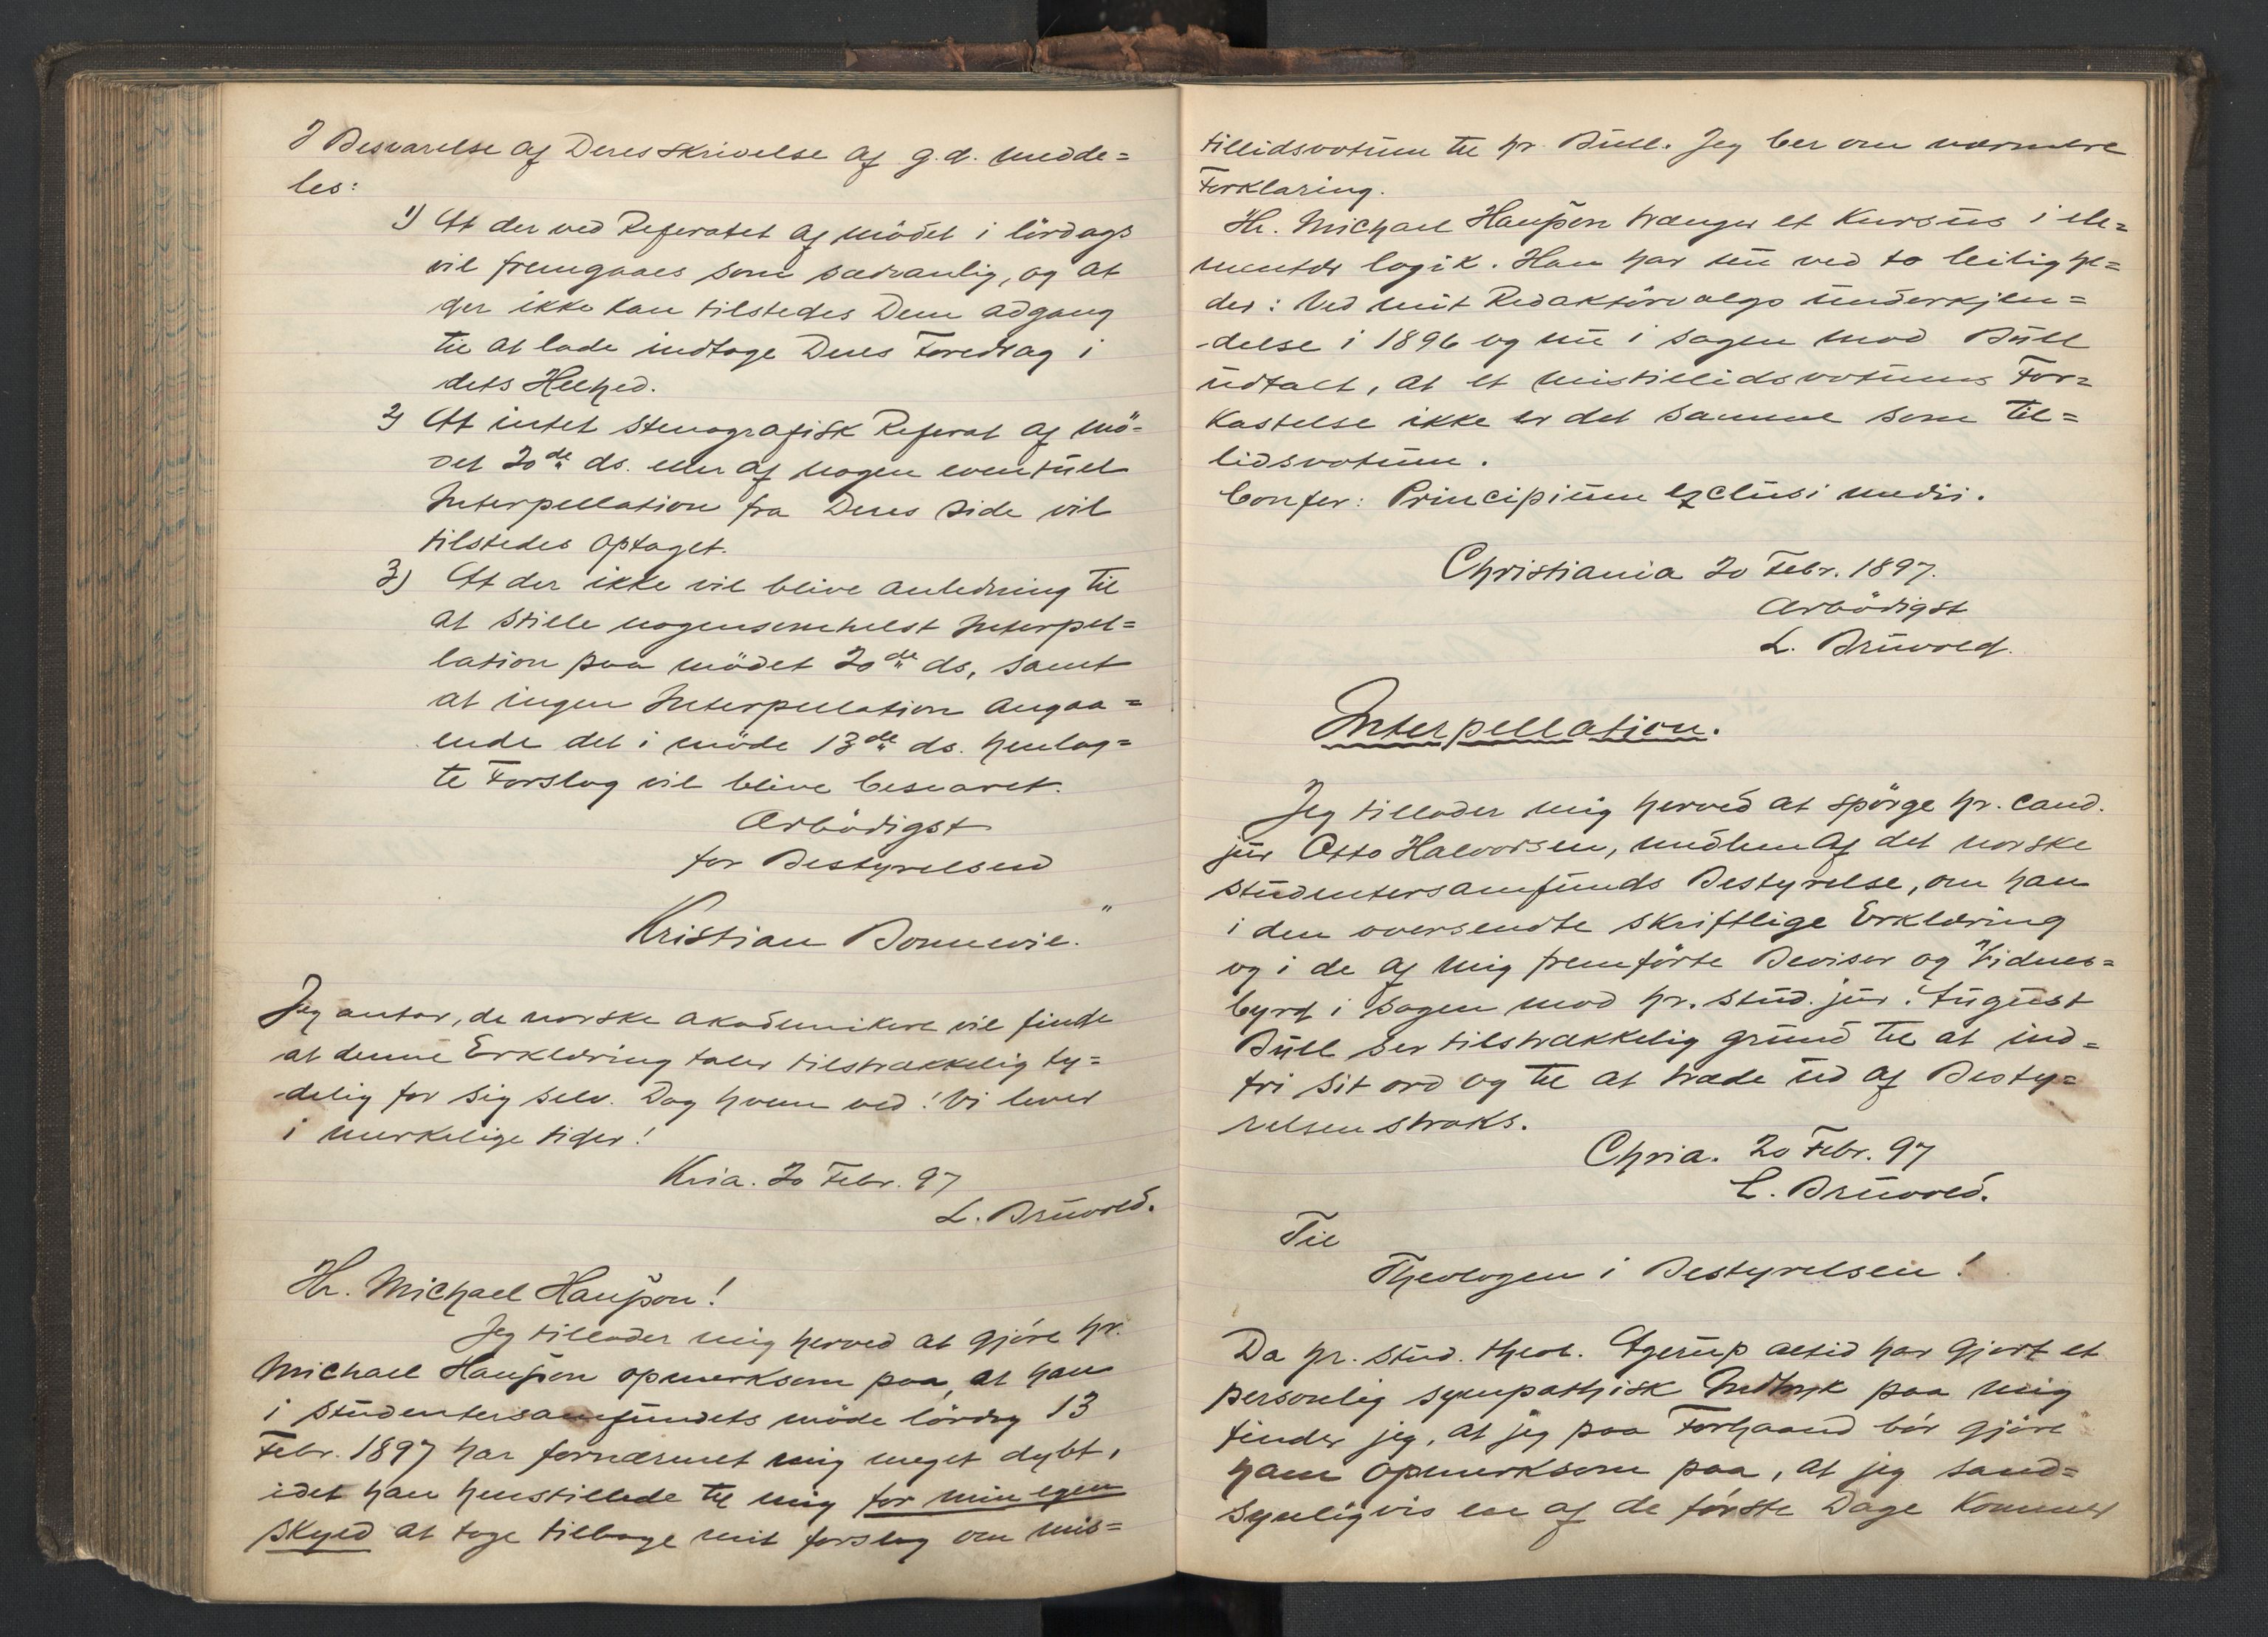 I Besvarelse af Deres Skrivelse af g. d. medde=
les:
1) At der ved Referatet af mödet i lördags
vil fremgaaes som sædvanlig, og at
der ikke kan tilstedes Dem adgang
til at lade indtage Deres Foredrag i
dets Helhed.
2) At intet stenografisk Referat af mö=
det 20de ds. eller af nogen eventuel
Interpellation fra Deres side vil
tilstedes optaget.
3) At der ikke vil blive anledning til
at stille nogensomhelst Interpel=
lation paa mödet 20de ds, samt
at ingen Interpellation angaa=
ende det i möde 13de ds. henlag=
te Forslag vil blive besvaret.
Ærbödigst
for Bestyrelsen
Kristian Bonnevie."
Jeg antar, de norske akademikere vil finde
at denne Erklæring taler tilstrækkelig ty=
delig for sig selv. Dog hvem ved! Vi lever
i merkelige tider!
Kria. 20 Febr. 97
L. Bruvold.
Hr. Michael Hansson!
Jeg tillader mig herved at gjöre hr.
Michael Hansson opmerksom paa, at han
i studentersamfundets möde lördag 13
Febr. 1897 har fornærmet mig meget dybt,
idet han henstillede til mig for min egen
skyld at tage tilbage mit forslag om mis=
tillidsvotum til hr. Bull. Jeg ber om nærmere
Forklaring.
Hr. Michael Hansson trænger et Kursus i ele=
mentær logik. Han har nu ved to leilighe=
der: Ved mit Redaktörvalgs underkjen=
delse i 1896 og nu i sagen mod Bull
udtalt, at et mistillidsvotums For=
kastelse ikke er det samme som til=
lidsvotum.
Confer: Principium exclusi medii.
Christiania 20 Febr. 1897.
Ærbödigst
L. Bruvold.
Interpellation.
Jeg tillader mig herved at spörge hr. cand.
jur Otto Halvorsen, medlem af det norske
studentersamfunds Bestyrelse, om han
i den oversendte skriftlige Erklæring
og i de af mig fremförte Beviser og Vidnes=
byrd i sagen mod hr. stud. jur. August
Bull ser tilstrækkelig grund til at ind=
fri sit ord og til at træde ud af Besty=
relsen straks.
Chria. 20 Febr. 97
L. Bruvold.
Til
Theologen i Bestyrelsen!
Da hr. stud. theol. Agerup altid har gjort et
personlig sympathisk Indtryk paa mig
finder jeg, at jeg paa Forhaand bör gjöre
ham opmerksom paa, at jeg sand=
synligvis en af de förste Dage kommer